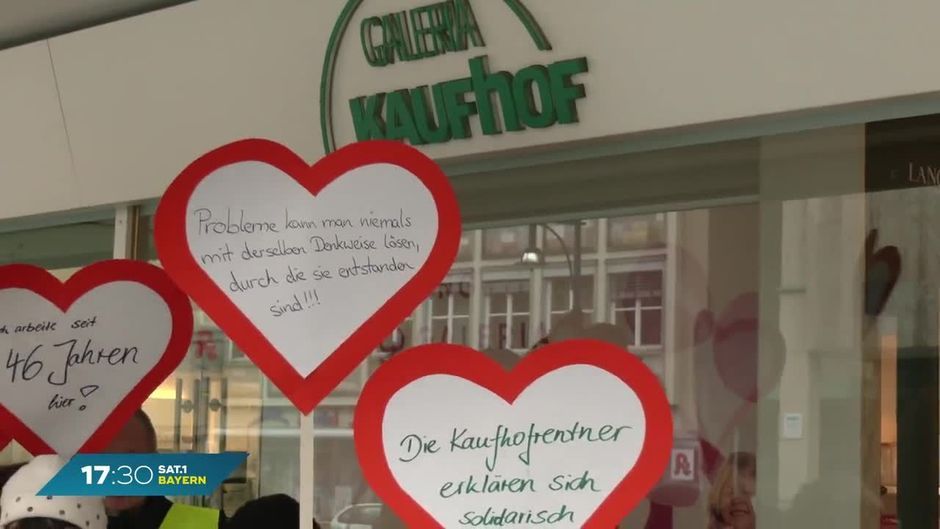 GALERIA
KAUFHOF
LANC
Probleme kann man niemals
mit derselben Denkweise lösen,
durch die sie entstanden
sind!!!
ch arbeite seit
46 Jahren
hier!
Die Kaufhofrentner
erklären sich
solidarisch
GALERIA
17:30 SAT.1
BAYERN